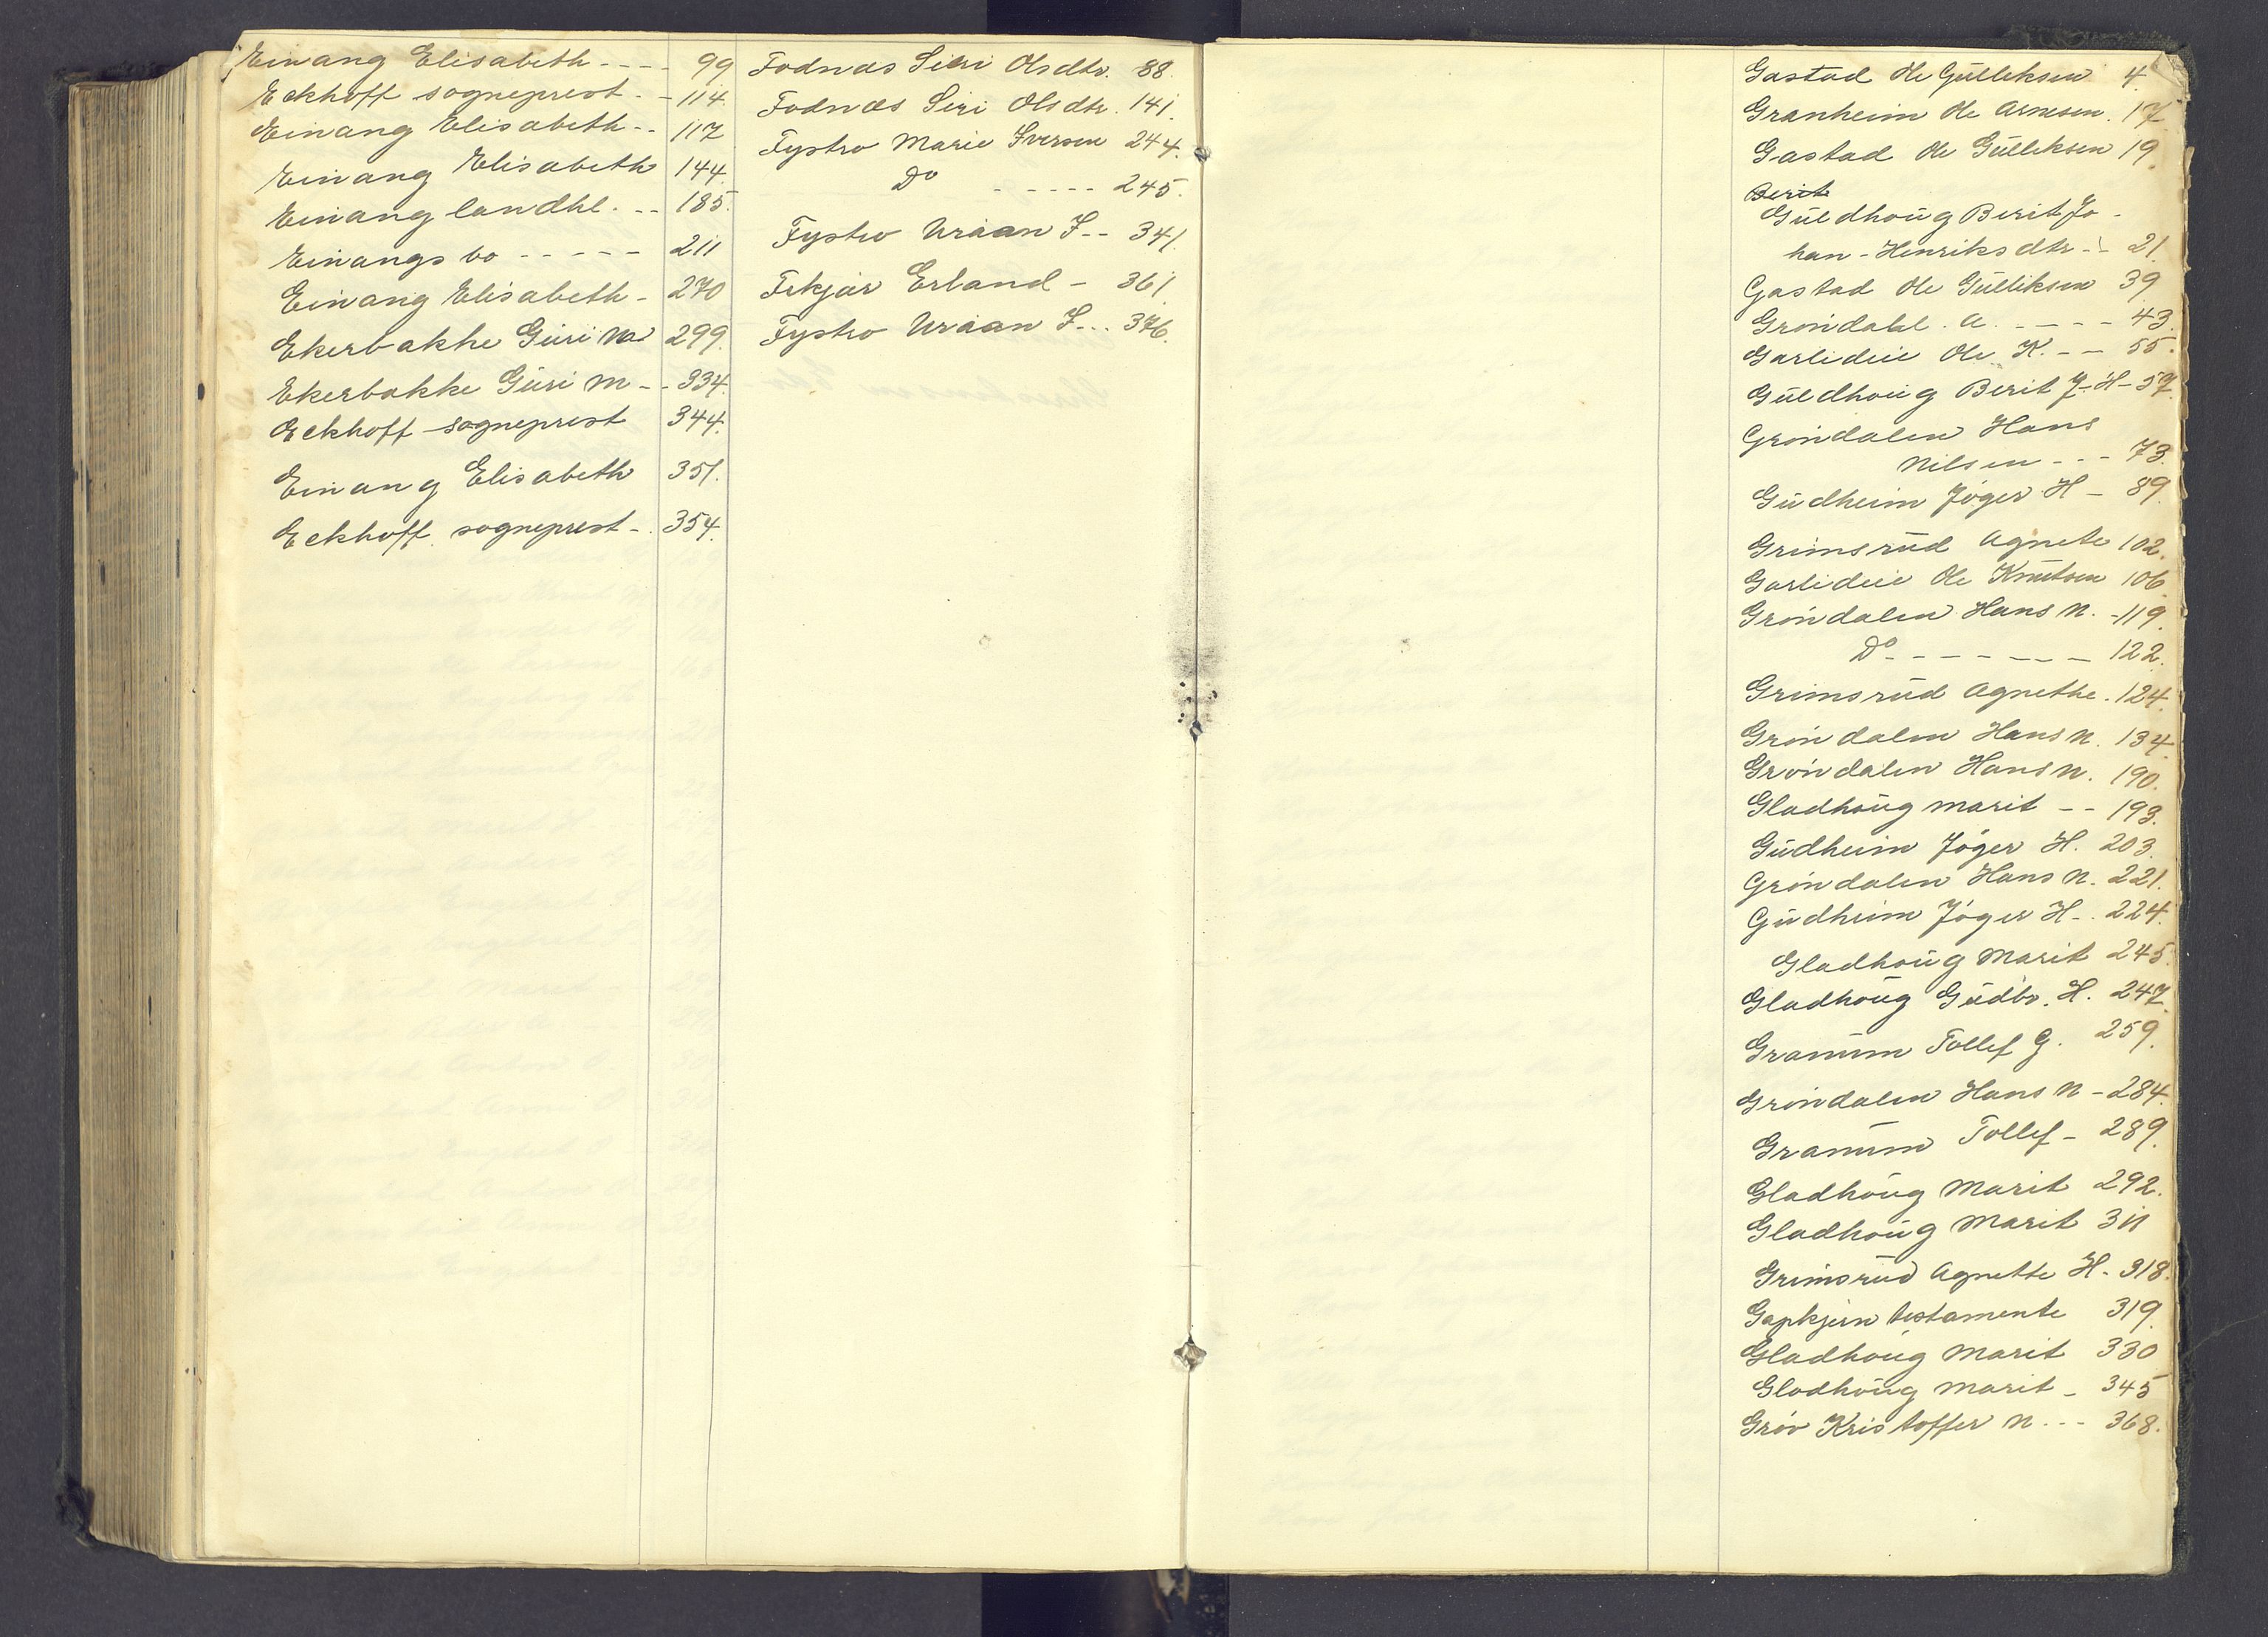 Einang Elisabeth - - - - 99
Eckhoff sogneprest - - 114.
Einang Elisabeth - - 117
Einang Elisabeth 144.
Einang landhl. - - 185.
Einangs bo - - - - - 211
Einang Elisabeth - 270
Ekerbakke Guri 299.
Ekerbakke Guri M - - 334.
Eckhoff sogneprest 344.
Einang Elisabeth 351.
Eckhoff sogneprest - . 354.
Fodnæs Siri Olsdtr. 88.
Fodnæs Siri Olsdtr. 141.
Fystro Marie Iversen 244.
Do - - - - - 245.
Fystro Uraan I - - 341.
Fekjær Erland - 361.
Fystro Uraan I - - . 376.
Gastad Ole Gulliksen 4.
Granheim Ole Arnesen. 17.
Gastad Ole Gulliksen 19.
Berit
Guldhoug Berit Jo-
han-Henriksdtr - - 21.
Gastad Ole Gulliksen 39
Grøndahl. A. - - - - 43.
Garlideie Ole K. - - 55.
Guldhoug Berit J-H- 57.
Grøndalen Hans
Nilsen - - - 73.
Gudheim Jøger H - 89.
Grimsrud Agnete 102.
Garlideie Ole Knutsen 106.
Grøndalen Hans N. - 119.
Do - - - - - - - 122.
Grimsrud Agnethe. 124.
Grøndalen Hans N. 134.
Grøndalen Hans N. 190.
Gladhoug Marit - - 193.
Gudheim Jøger H. 203.
Grøndalen Hans N. 221.
Gudheim Jøger H - . 224.
Gladhoug Marit 245.
Gladhoug Gudbr. H. 247.
Granum Tollef G. 259.
Grøndalen Hans N - 284.
Granum Tollef - 289.
Gladhoug Marit 292.
Gladhoug Marit 311
Grimsrud Agnette H. 318.
Gapkjern testamente 319.
Gladhoug Marit 330
Gladhoug Marit - 345
Grøv Kristoffer N. - - 368.